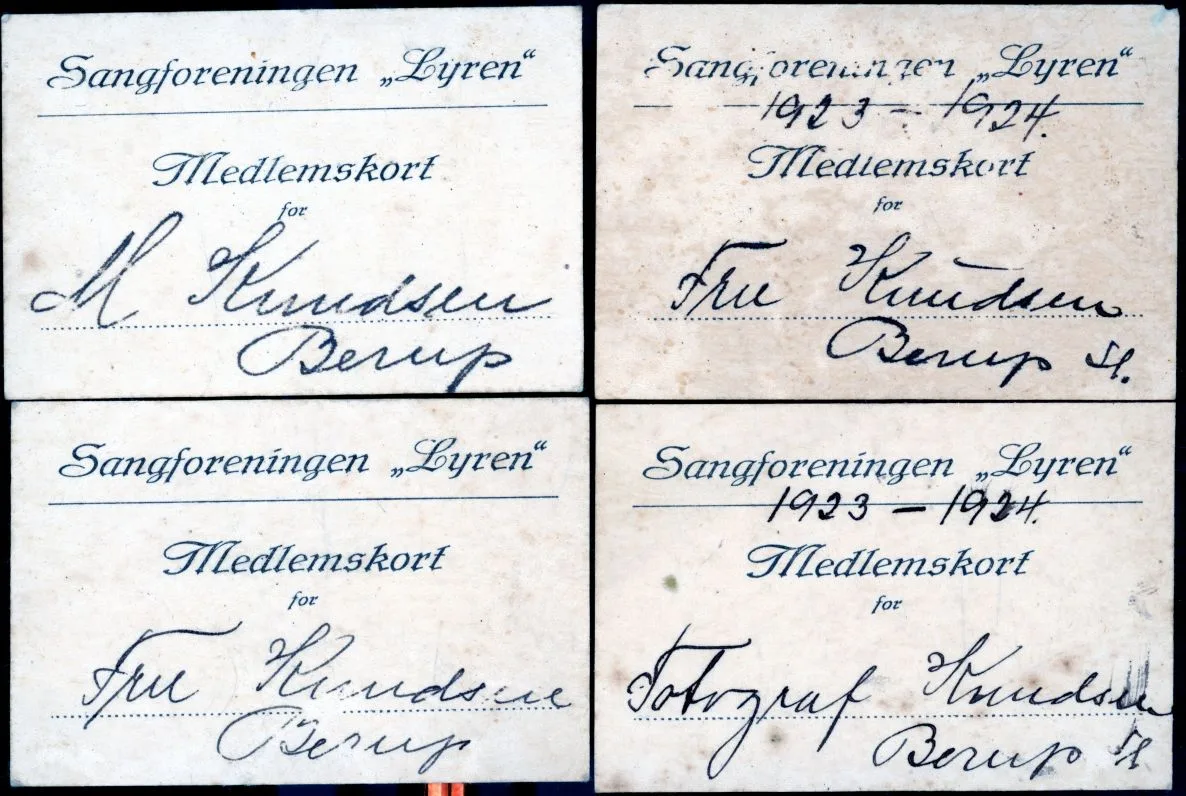 Sangforeningen „Lyren“
Medlemskort
for
M Knudsen
Berup
Sangforeningen „Lyren“
1923 – 1924.
Medlemskort
for
Fru Knudsen
Berup St.
Sangforeningen „Lyren“
Medlemskort
for
Fru Knudsen
Berup
Sangforeningen „Lyren“
1923 – 1924.
Medlemskort
for
Fotograf Knudsen
Berup St